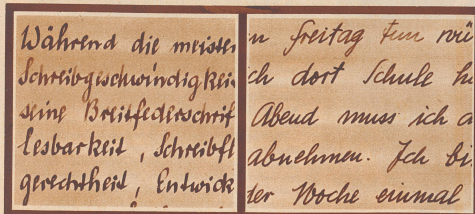 Während die meisten
Schreibgeschwindigkei
seine Breitfederschrif
lesbarkeit, Schreibfl
gerechtheit, Entwick
n Freitag tun wü
ich dort Schule h
Abend muss ich a
abnehmen. Ich bi
der Woche einmal